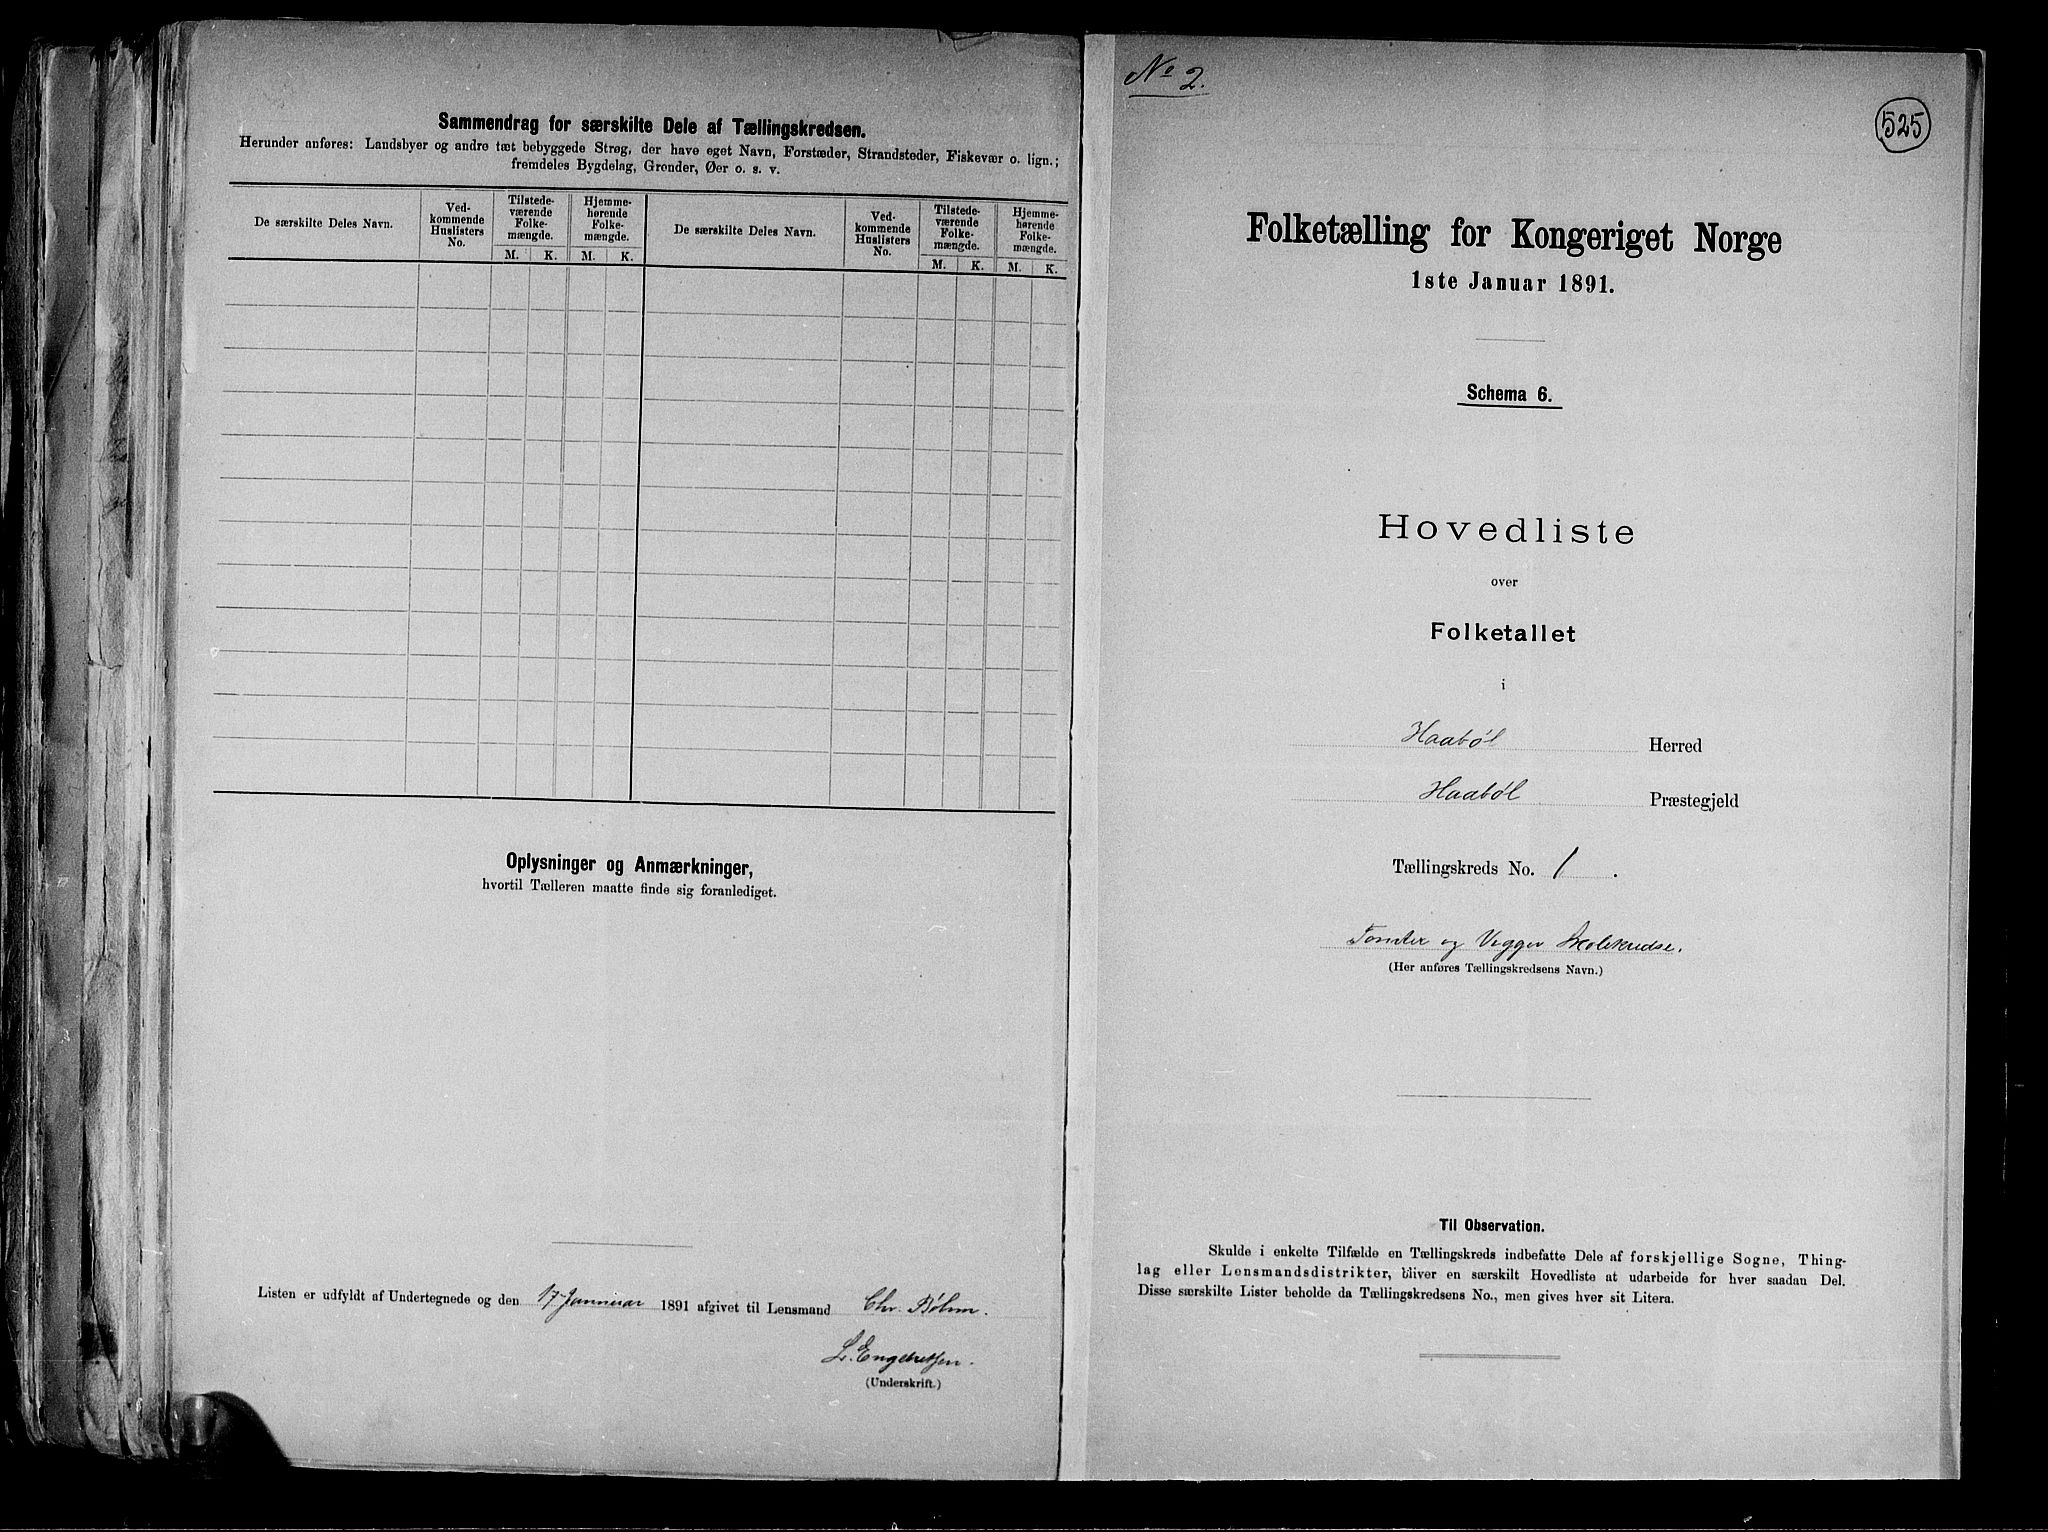 Sammendrag for særskilte Dele af Tællingskredsen.
Herunder anføres: Landsbyer og andre tæt bebyggede Strøg, der have eget Navn, Forstæder, Strandsteder, Fiskevær o. lign.;
fremdeles Bygdelag, Grender, Øer o. s. v.
De særskilte Deles Navn.
Ved-
kommende
Huslisters
No.
Tilstede-
værende
Folke-
mængde.
M. K.
Hjemme-
hørende
Folke-
mængde.
M. K.
De særskilte Deles Navn.
Ved-
kommende
Huslisters
No.
Tilstede-
værende
Folke-
mængde.
M. K.
Hjemme-
hørende
Folke-
mængde.
M. K.
Oplysninger og Anmærkninger,
hvortil Tælleren maatte finde sig foranlediget.
Listen er udfyldt af Undertegnede og den 17 Januar 1891 afgivet til Lensmand Chr. Bøhm.
L. Engebretsen.
(Underskrift.)
No 2.
525
Folketælling for Kongeriget Norge
1ste Januar 1891.
Schema 6.
Hovedliste
over
Folketallet
i
Haabøl Herred
Haabøl Præstegjeld
Tællingskreds No. 1.
Tomter og Vegger Skolekredse.
(Her anføres Tællingskredsens Navn.)
Til Observation.
Skulde i enkelte Tilfælde en Tællingskreds indbefatte Dele af forskjellige Sogne, Thing-
lag eller Lensmandsdistrikter, bliver en særskilt Hovedliste at udarbeide for hver saadan Del.
Disse særskilte Lister beholde da Tællingskredsens No., men gives hver sit Litera.